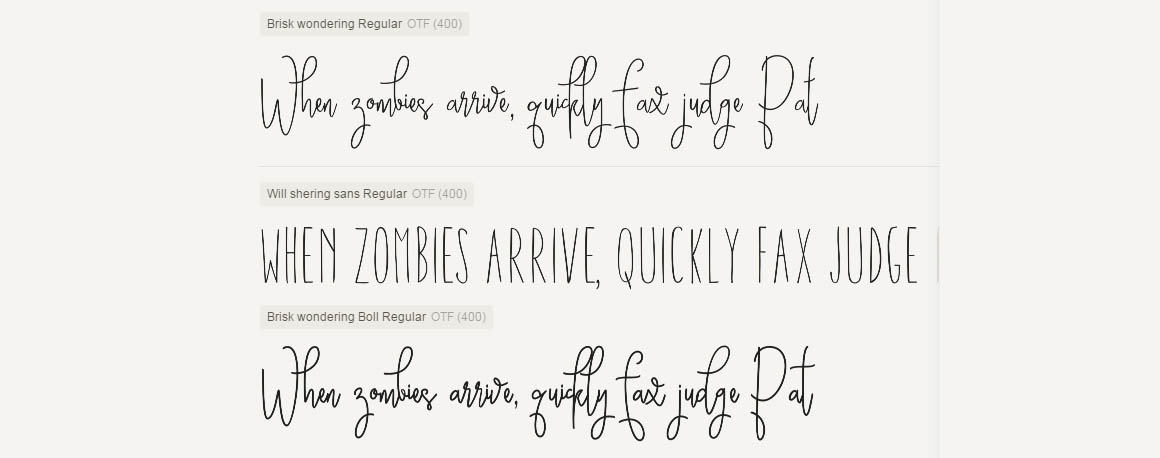 Brisk wondering Regular OTF (400)
When zombies arrive, quickly fax judge Pat
Will shering sans Regular OTF (400)
WHEN ZOMBIES ARRIVE, QUICKLY FAX JUDGE
Brisk wondering Boll Regular OTF (400)
When zombies arrive, quickly fax judge Pat